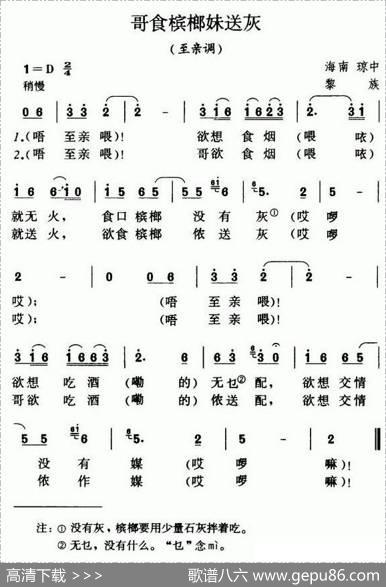 哥食槟榔妹送灰
(至亲调)
1=D 2/4
海南 琼中
稍慢
黎 族
0 6 | 3 3 2 | 2 - | 3 1 6 1 6 2 3 | 2. 3 1 |
1.(唔 至亲 喂)! 欲想 食烟 (喂 咴)
2.(唔 至亲 喂)! 哥欲 食烟 (喂 咴)
1 6 6 1 0 | 1 5 6 5 | 5 5 6 | 5. 2 5 |
就无 火, 食口 槟榔 没 有 灰① (哎 啰
就送 火, 欲食 槟榔 侬 送 灰 (哎 啰
2 - | 0 0 6 | 3 3 2 | 2 - |
哎); (唔 至亲 喂)!
哎); (唔 至亲 喂)!
3 1 6 1 6 6 3 | 2. 6 | 6 3 0 | 1 6 5 5 |
欲想 吃酒 (嘞 的) 无乜② 配, 欲想 交情
哥欲 吃酒 (嘞 的) 侬送 配, 欲想 交情
5 5 6 | 5. 2 5 | 2 - ‖
没 有 媒 (哎 啰 嘛)!
侬 作 媒 (哎 啰 嘛)!
注: ① 没有灰,槟榔要用少量石灰拌着吃。
② 无乜,没有什么。“乜”念mì。
高清下载 >>>
歌谱八六 www.gepu86.com